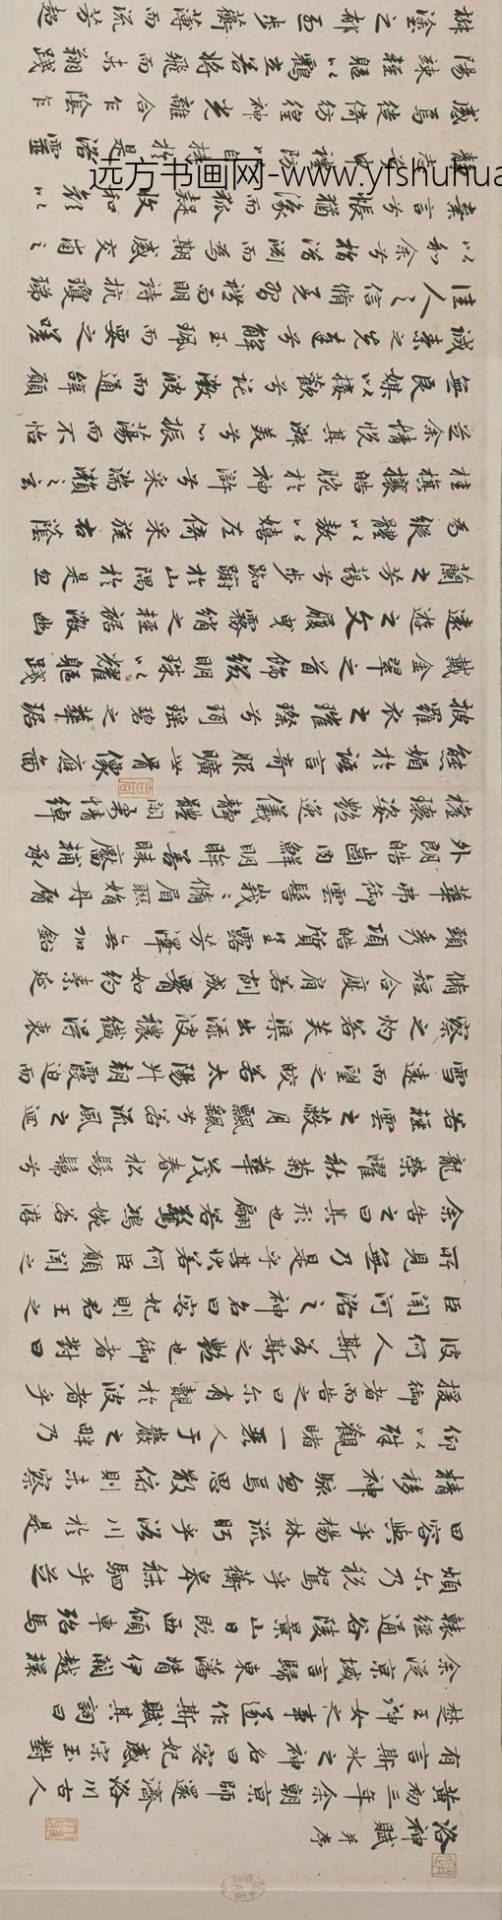 洛神賦 并序
黃初三年余朝京師還濟洛川古人
有言斯水之神名曰宓妃感宋玉對
楚王神女之事遂作斯賦其詞曰
余從京域言歸東藩背伊闕越轘
轅經通谷陵景山日既西傾車殆馬
煩尔乃稅駕乎蘅皋秣駟乎芝
田容與乎楊林流眄乎洛川於是
精移神駭忽焉思散俯則未察
仰以殊觀睹一麗人于巖之畔乃
援御者而告之曰尔有覿於彼者乎
彼何人斯若斯之艷也御者對曰
臣聞河洛之神名曰宓妃則君王之
所見無乃是乎其狀若何臣願聞之
余告之曰其形也翩若驚鴻婉若游
龍榮曜秋菊華茂春松髣髴兮
若輕雲之蔽月飄飖兮若流風之迴
雪遠而望之皎若太陽升朝霞迫而
察之灼若芙蕖出淥波穠纖得衷
脩短合度肩若削成腰如約素延
頸秀項皓質呈露芳澤無加鉛
華弗御雲髻峩峩脩眉聯娟丹脣
外朗皓齒內鮮明眸善睞靨輔承
權瓌姿艷逸儀靜體閑柔情綽
態媚於語言奇服曠世骨像應圖
披羅衣之璀璨兮珥瑤碧之華琚
戴金翠之首飾綴明珠以耀軀踐
遠遊之文履曳霧綃之輕裾微幽
蘭之芳藹兮步踟躕於山隅於是忽
焉縱體以遨以嬉左倚采旄右蔭
桂旗攘皓腕於神滸兮采湍瀨之玄
芝余情悅其淑美兮心振蕩而不怡
無良媒以接歡兮託微波而通辭願
誠素之先達兮解玉珮而要之嗟
佳人之信脩羌習禮而明詩抗瓊珶
以和余兮指潛淵而為期感交甫之
棄言兮悵猶豫而狐疑收和顏以
靜志兮申禮防以自持於是洛靈
感焉徙倚彷徨神光離合乍陰乍
陽竦輕軀以鶴立若將飛而未翔踐
椒塗之郁烈步蘅薄而流芳超
远方书画网-www.yfshuhua